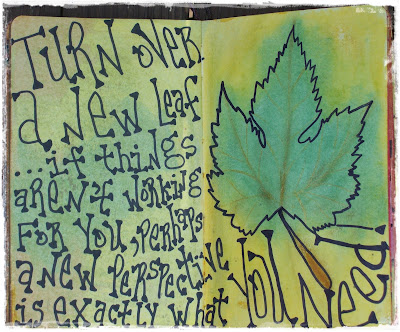 TURN OVER
a NEW LEAF
...if things
aren't working
FOR YOU, PERHAPS
a NEW PERSPECTIVE
is exactly what YOU NEED!